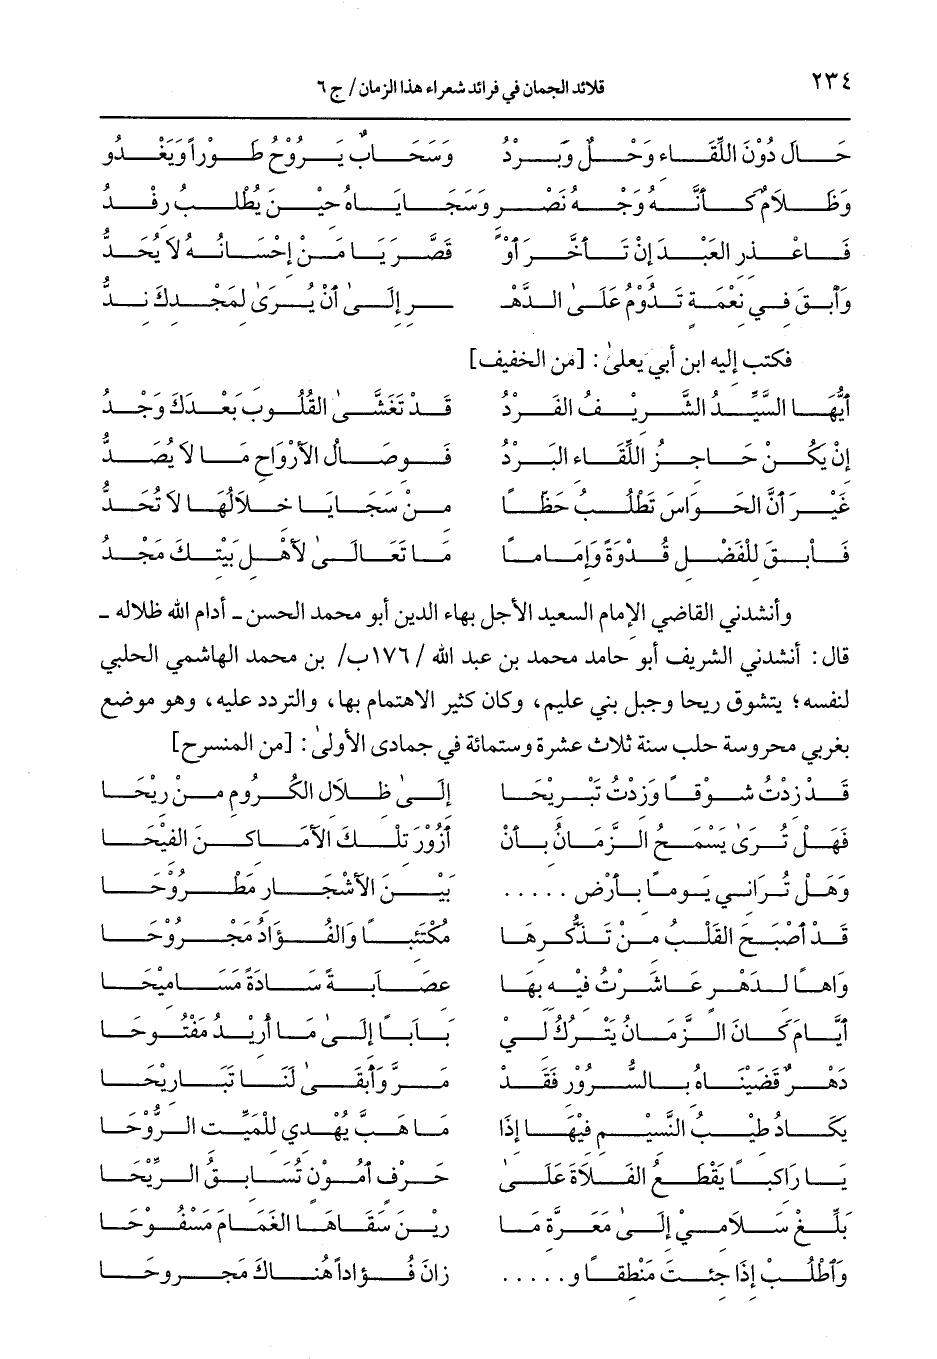 ٢٣٤ قلائد الجمان في فرائد شعراء هذا الزمان / ج ٦
حَالَ دُوْنَ اللِّقَاءِ وَحْلٌ وَبَرْدُ وَسَحَابٌ يَرُوْحُ طَوْراً وَيَغْدُو
وَظَلَامٌ كَأَنَّهُ وَجْهُ نَصْرٍ وَسَجَايَاهُ حِيْنَ يُطْلَبُ رِفْدُ
فَاعْذِرِ العَبْدَ إِنْ تَأَخَّرَ أَوْ قَصَّرَ يَا مَنْ إِحْسَانُهُ لَا يُحَدُّ
وَأبْقَ فِي نِعْمَةٍ تَدُوْمُ عَلَى الدَّهْـ ـرِ إِلَى أَنْ يُرَىٰ لِمَجْدِكَ نِدُّ
فكتب إليه ابن أبي يعلىٰ: [من الخفيف]
أَيُّهَا السَّيِّدُ الشَّرِيْفُ الفَرْدُ قَدْ تَغَشَّىٰ القُلُوبَ بَعْدَكَ وَجْدُ
إِنْ يَكُنْ حَاجِزُ اللِّقَاءِ البَرْدُ فَوِصَالُ الأَرْوَاحِ مَا لَا يُصَدُّ
غَيْرَ أَنَّ الحَوَاسَ تَطْلُبُ حَظًّا مِنْ سَجَايَا خِلَالُهَا لَا تُحَدُّ
فَأبْقَ لِلْفَضْلِ قُدْوَةً وَإِمَاماً مَا تَعَالَىٰ لِأَهْلِ بَيْتِكَ مَجْدُ
وأنشدني القاضي الإمام السعيد الأجل بهاء الدين أبو محمد الحسن ـ أدام الله ظلاله ـ
قال: أنشدني الشريف أبو حامد محمد بن عبد الله / ١٧٦ب/ بن محمد الهاشمي الحلبي
لنفسه؛ يتشوق ريحا وجبل بني عليم، وكان كثير الاهتمام بها، والتردد عليه، وهو موضع
بغربي محروسة حلب سنة ثلاث عشرة وستمائة في جمادى الأولىٰ: [من المنسرح]
قَدْ زِدْتُ شَوْقاً وَزِدْتُ تَبْرِيْحَا إِلَىٰ ظِلَالِ الكُرُومِ مِنْ رِيْحَا
فَهَلْ تُرَىٰ يَسْمَحُ الزَّمَانُ بِأَنْ أَزُوْرَ تِلْكَ الأَمَاكِنَ الفِيْحَا
وَهَلْ تُرَانِي يَوماً بِأَرْضِ ..... بَيْنَ الأَشْجَارِ مَطْرُوْحَا
قَدْ أَصْبَحَ القَلْبُ مِنْ تَذَكُّرِهَا مُكْتَئِباً وَالفُؤَادُ مَجْرُوْحَا
وَاهاً لِدَهْرٍ عَاشَرْتُ فِيْهِ بِهَا عِصَابَةً سَادَةً مَسَامِيْحَا
أَيَّامَ كَانَ الزَّمَانُ يَتْرُكُ لِيْ بَاباً إِلَىٰ مَا أُرِيْدُ مَفْتُوحَا
دَهْرٌ قَضَيْنَاهُ بِالسُّرُوْرِ فَقَدْ مَرَّ وَأَبْقَىٰ لَنَا تَبَارِيْحَا
يَكَادُ طِيْبُ النَّسِيْمِ فِيْهَا إِذَا مَا هَبَّ يُهْدِي لِلْمَيِّتِ الرُّوْحَا
يَا رَاكِباً يَقْطَعُ الفَلَاةَ عَلَىٰ حَرْفٍ أَمُوْنٍ تُسَابِقُ الرِّيْحَا
بَلِّغْ سَلَامِيْ إِلَىٰ مَعَرَّةِ مَا رِيْنَ سَقَاهَا الغَمَامُ مَسْفُوْحَا
وَاطْلُبْ إِذَا جِئْتَ مَنْطِقاً و ..... زَانَ فُؤَاداً هُنَاكَ مَجْرُوحَا